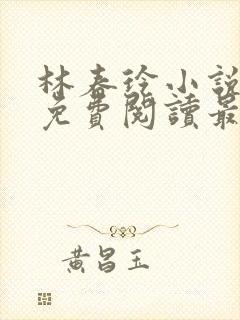 林春徐小說
免費閱讀最
黃昌玉